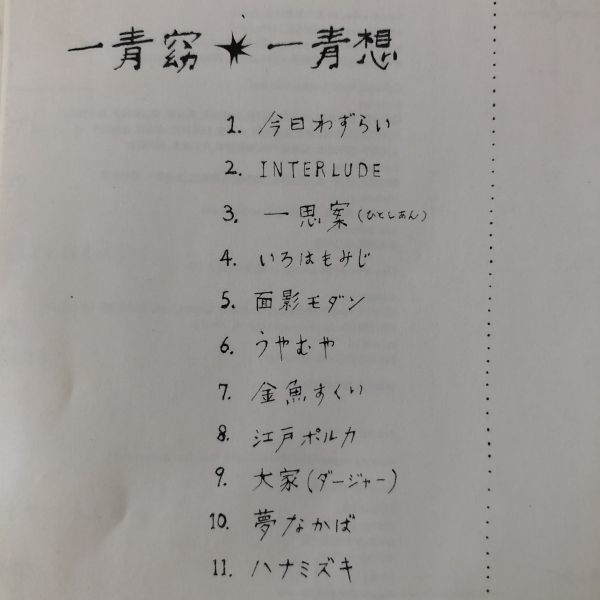 一青窈★一青想
1. 今日わずらい
2. INTERLUDE
3. 一思案(ひとしあん)
4. いろはもみじ
5. 面影モダン
6. うやむや
7. 金魚すくい
8. 江戸ポルカ
9. 大家(ダージャー)
10. 夢なかば
11. ハナミズキ